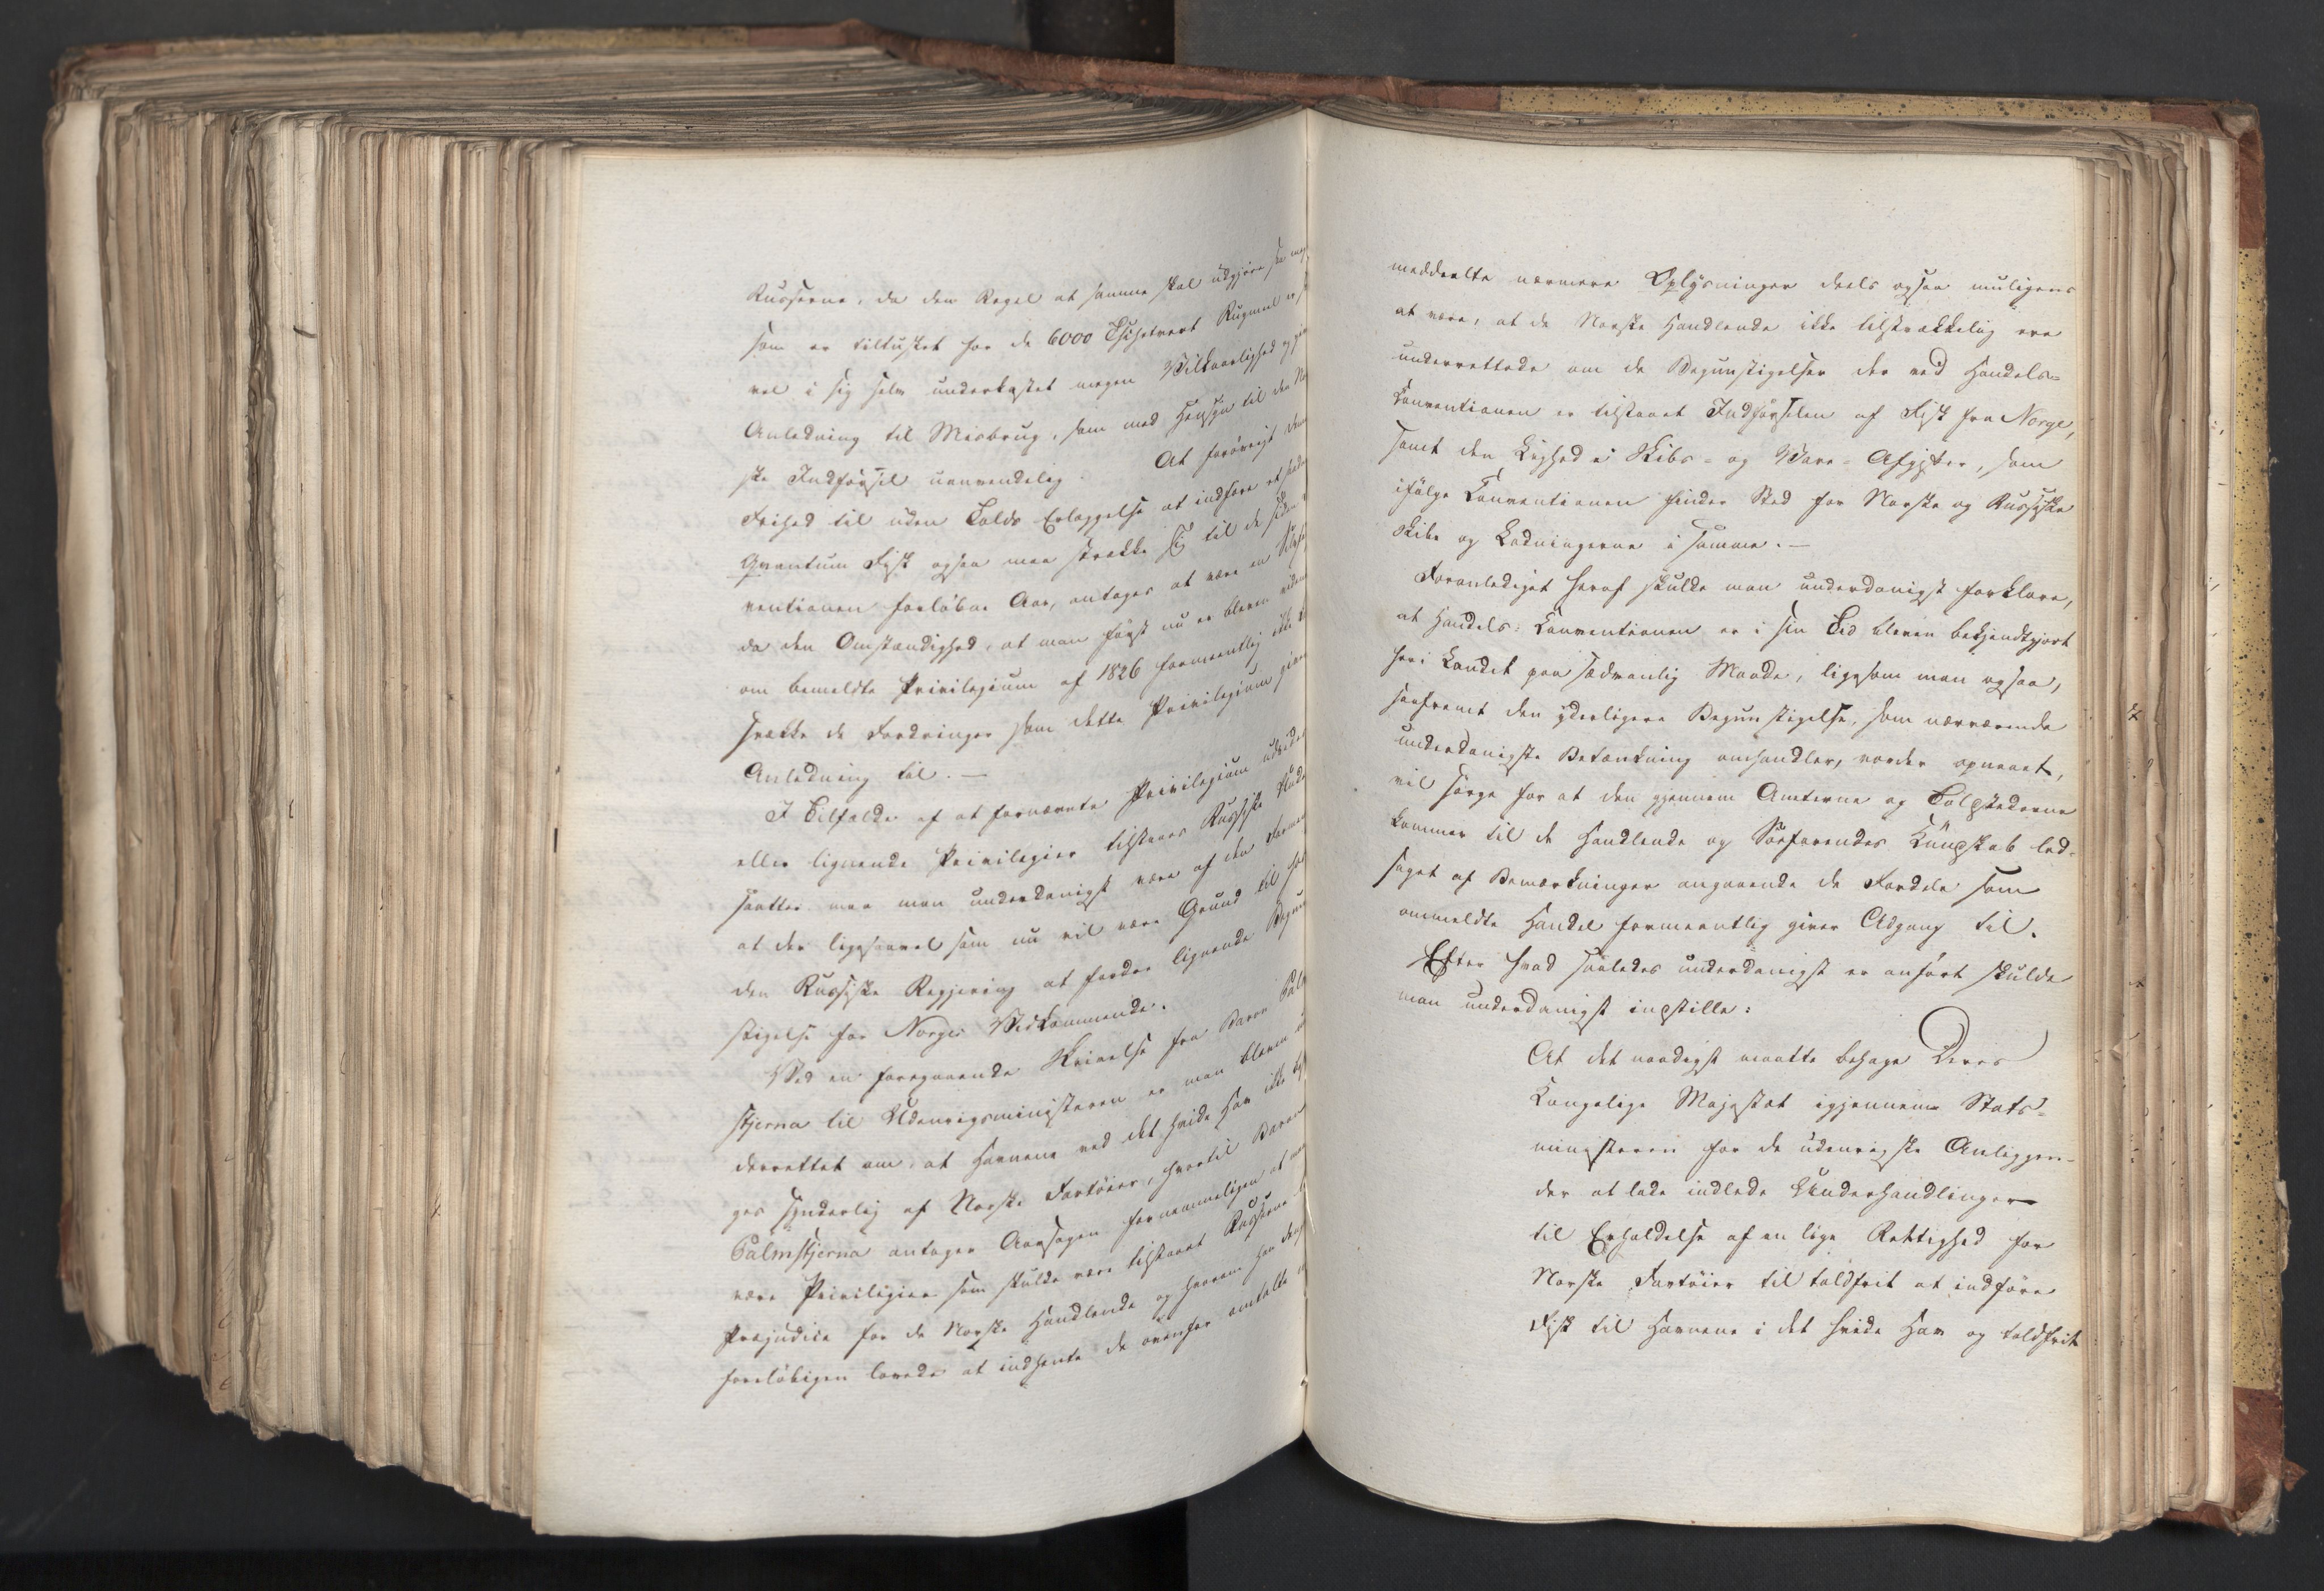 Russerne, da den Regel at samme skal udgjøre
som er tiltusket for de 6000 Tschetvert Rugmeel er
vel i sig selv underkastet megen Vilkaarlighed og
Anledning til Misbrug, som med Hensyn til den
ske Indførsel uanvendelig. At forøvrigt
Frihed til uden Tolds Erlæggelse at indføre et
Qvantum Fisk ogsaa maa strække sig til de siden
ventionen forløbne Aar, antages at være en
da den Omstændighed, at man først nu er bleven
om bemeldte Privilegium af 1826 formeentlig ikke
svække de Fordringer som dette Privilegium
Anledning til. —
I Tilfælde af at fornævnte Privilegium
eller lignende Privilegier tilstaaes Russiske
saatter maa man underdanigst være af den
at der ligesaavel som nu vil være Grund til
den Russiske Regjering at fordre lignende
stigelse for Norges Vedkommende.
Ved en foregaaende Skrivelse fra Baron
stjerna til Udenrigsministeren er man bleven
derrettet om, at Havnene ved det hvide Hav ikke
ges synderlig af Norske Fartøier, hvortil Baron
Palmstjerna antager Aarsagen fornemmeligen at
være Privilegier som skulde være tilstaaet Russerne
Præjudice for de Norske Handlende og hvorom han
foreløbigen lovede at indhente de ovenfor omtalte
meddeelte nærmere Oplysninger deels ogsaa muligens
at være, at de Norske Handlende ikke tilstrækkelig ere
underrettede om de Begunstigelser der ved Handels-
Conventionen er tilstaaet Indførselen af Fisk fra Norge,
samt den Lighed i Skibs- og Vare-Afgifter, som
ifølge Conventionen finder Sted for Norske og Russiske
Skibe og Ladningerne i samme. —
Foranlediget heraf skulde man underdanigst forklare,
at Handels-Conventionen er i sin Tid bleven bekjendtgjort
her i Landet paa sædvanlig Maade, ligesom man ogsaa,
saafremt den yderligere Begunstigelse, som nærværende
underdanigste Betænkning omhandler, vorder opnaaet,
vil sørge for at den gjennem Amterne og Toldstederne
kommer til de Handlende og Søefarendes Kundskab led-
saget af Bemærkninger angaaende de Fordele som
ommeldte Handel formeentlig giver Adgang til.
Efter hvad saaledes underdanigst er anført skulde
man underdanigst indstille:
At det naadigst maatte behage Deres
Kongelige Majestæt igjennem Stats-
ministeren for de udenrigske Anliggen-
der at lade indlede Underhandlinger
til Erholdelse af en lige Rettighed for
Norske Fartøier til toldfrit at indføre
Fisk til Havnene i det hvide Hav og toldfrit